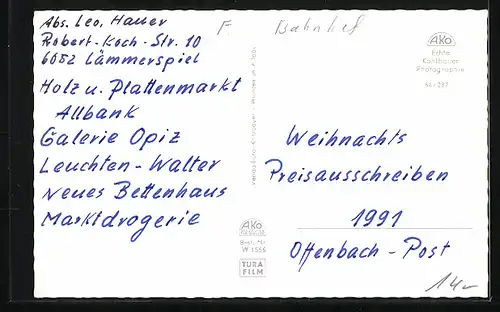 Abs. Leo, Hauer
Robert-Koch-Str. 10
6052 Lämmerspiel
Holz u. Plattenmarkt
Allbank
Galerie Opiz
Leuchten-Walter
Neues Bettenhaus
Marktdrogerie
F
Bahnhof
AKO
Echte
Photographie
AKO
W 1566
TURA
FILM
Weihnachts
Preisausschreiben
1991
Offenbach-Post
14.-